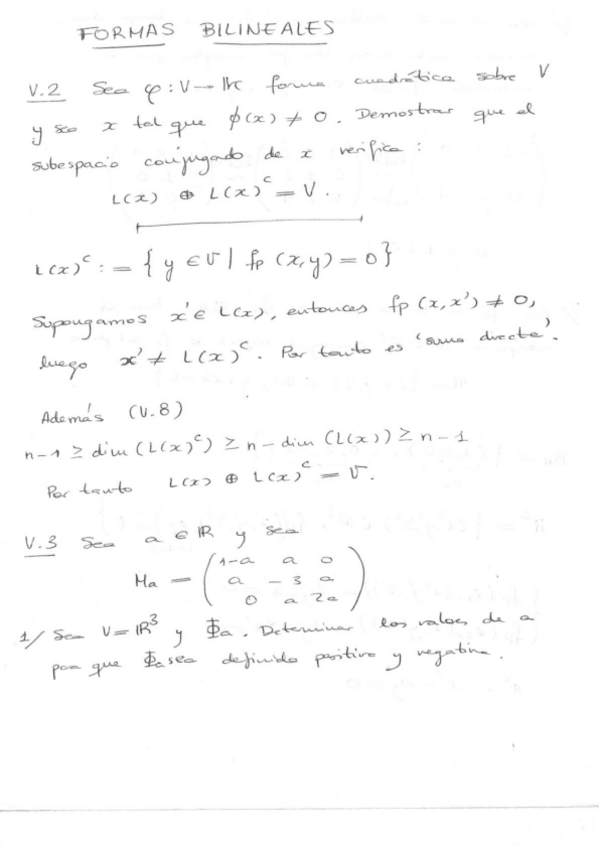 FORMAS BILINEALES
V.2 Sea φ: V → IK forma cuadrática sobre V
y sea x tal que ϕ(x) ≠ 0. Demostrar que el
subespacio conjugado de x verifica:
L(x) ⊕ L(x)^c = V.
L(x)^c := { y ∈ V | fp (x,y) = 0 }
Supongamos x' ∈ L(x), entonces fp (x,x') ≠ 0,
luego x' ≠ L(x)^c. Por tanto es 'suma directa'.
Además (V.8)
n-1 ≥ dim (L(x)^c) ≥ n - dim (L(x)) ≥ n-1
Por tanto L(x) ⊕ L(x)^c = V.
V.3 Sea a ∈ IR y sea
1-a a 0
Ma = ( a -3 a )
0 a 2a
1/ Sea V = IR^3 y Φa. Determinar los valores de a
para que Φa sea definido positivo y negativa.